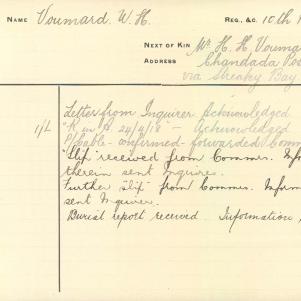 NAME Voumard W. H. REG., &C. 10th
NEXT OF KIN Mr H. H. Vouma
ADDRESS Chandada Pos
via Streaky Bay
1/L Letter from Inquirer Acknowledged
K in A 24/4/18 - Acknowledged
Cable - confirmed - forwarded Comm
"Slip" received from Commr. Infor
therein sent Inquirer.
Further "slip" from Commr. Inform
sent Inquirer.
Burial report received. Information